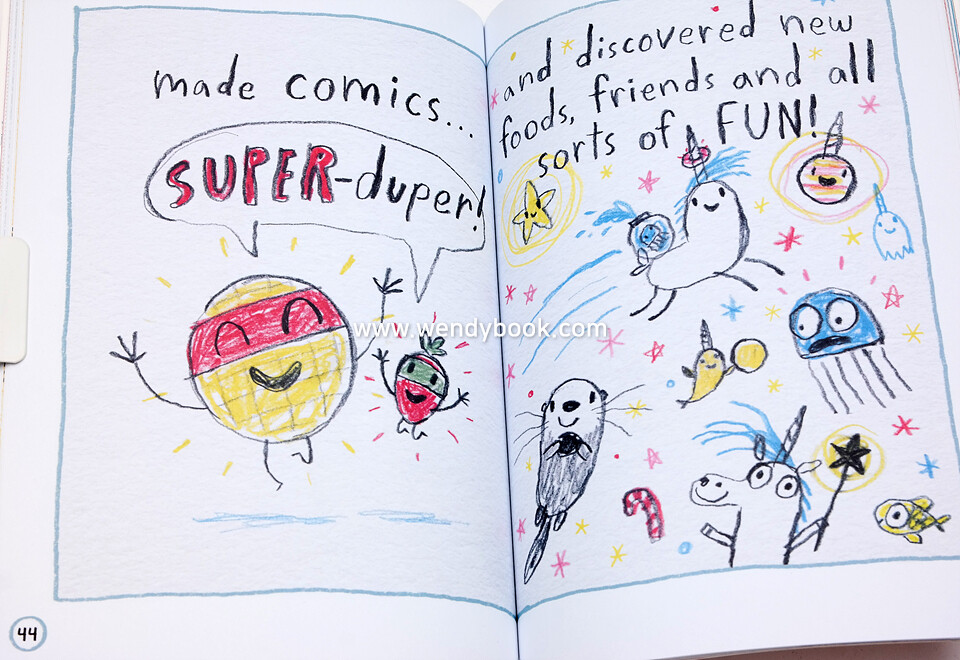 made comics...
SUPER-duper!
44
and discovered new
foods, friends and all
sorts of FUN!
www.wendybook.com